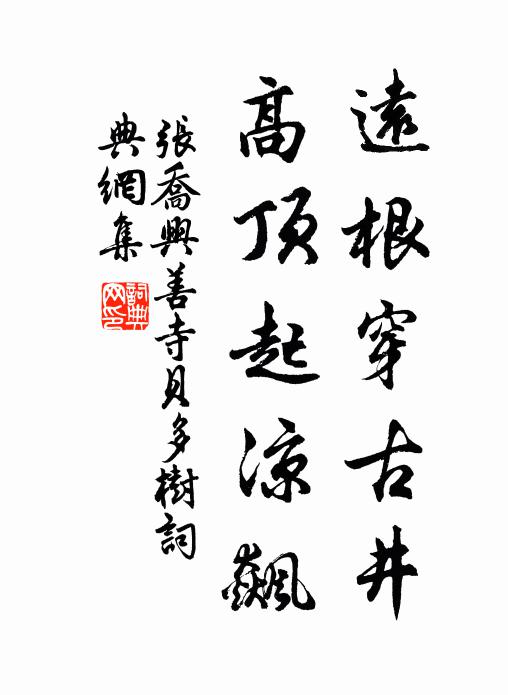 遠根穿古井
高頂起涼飆
張喬興善寺貝多樹詞
典網集
詞典
网印